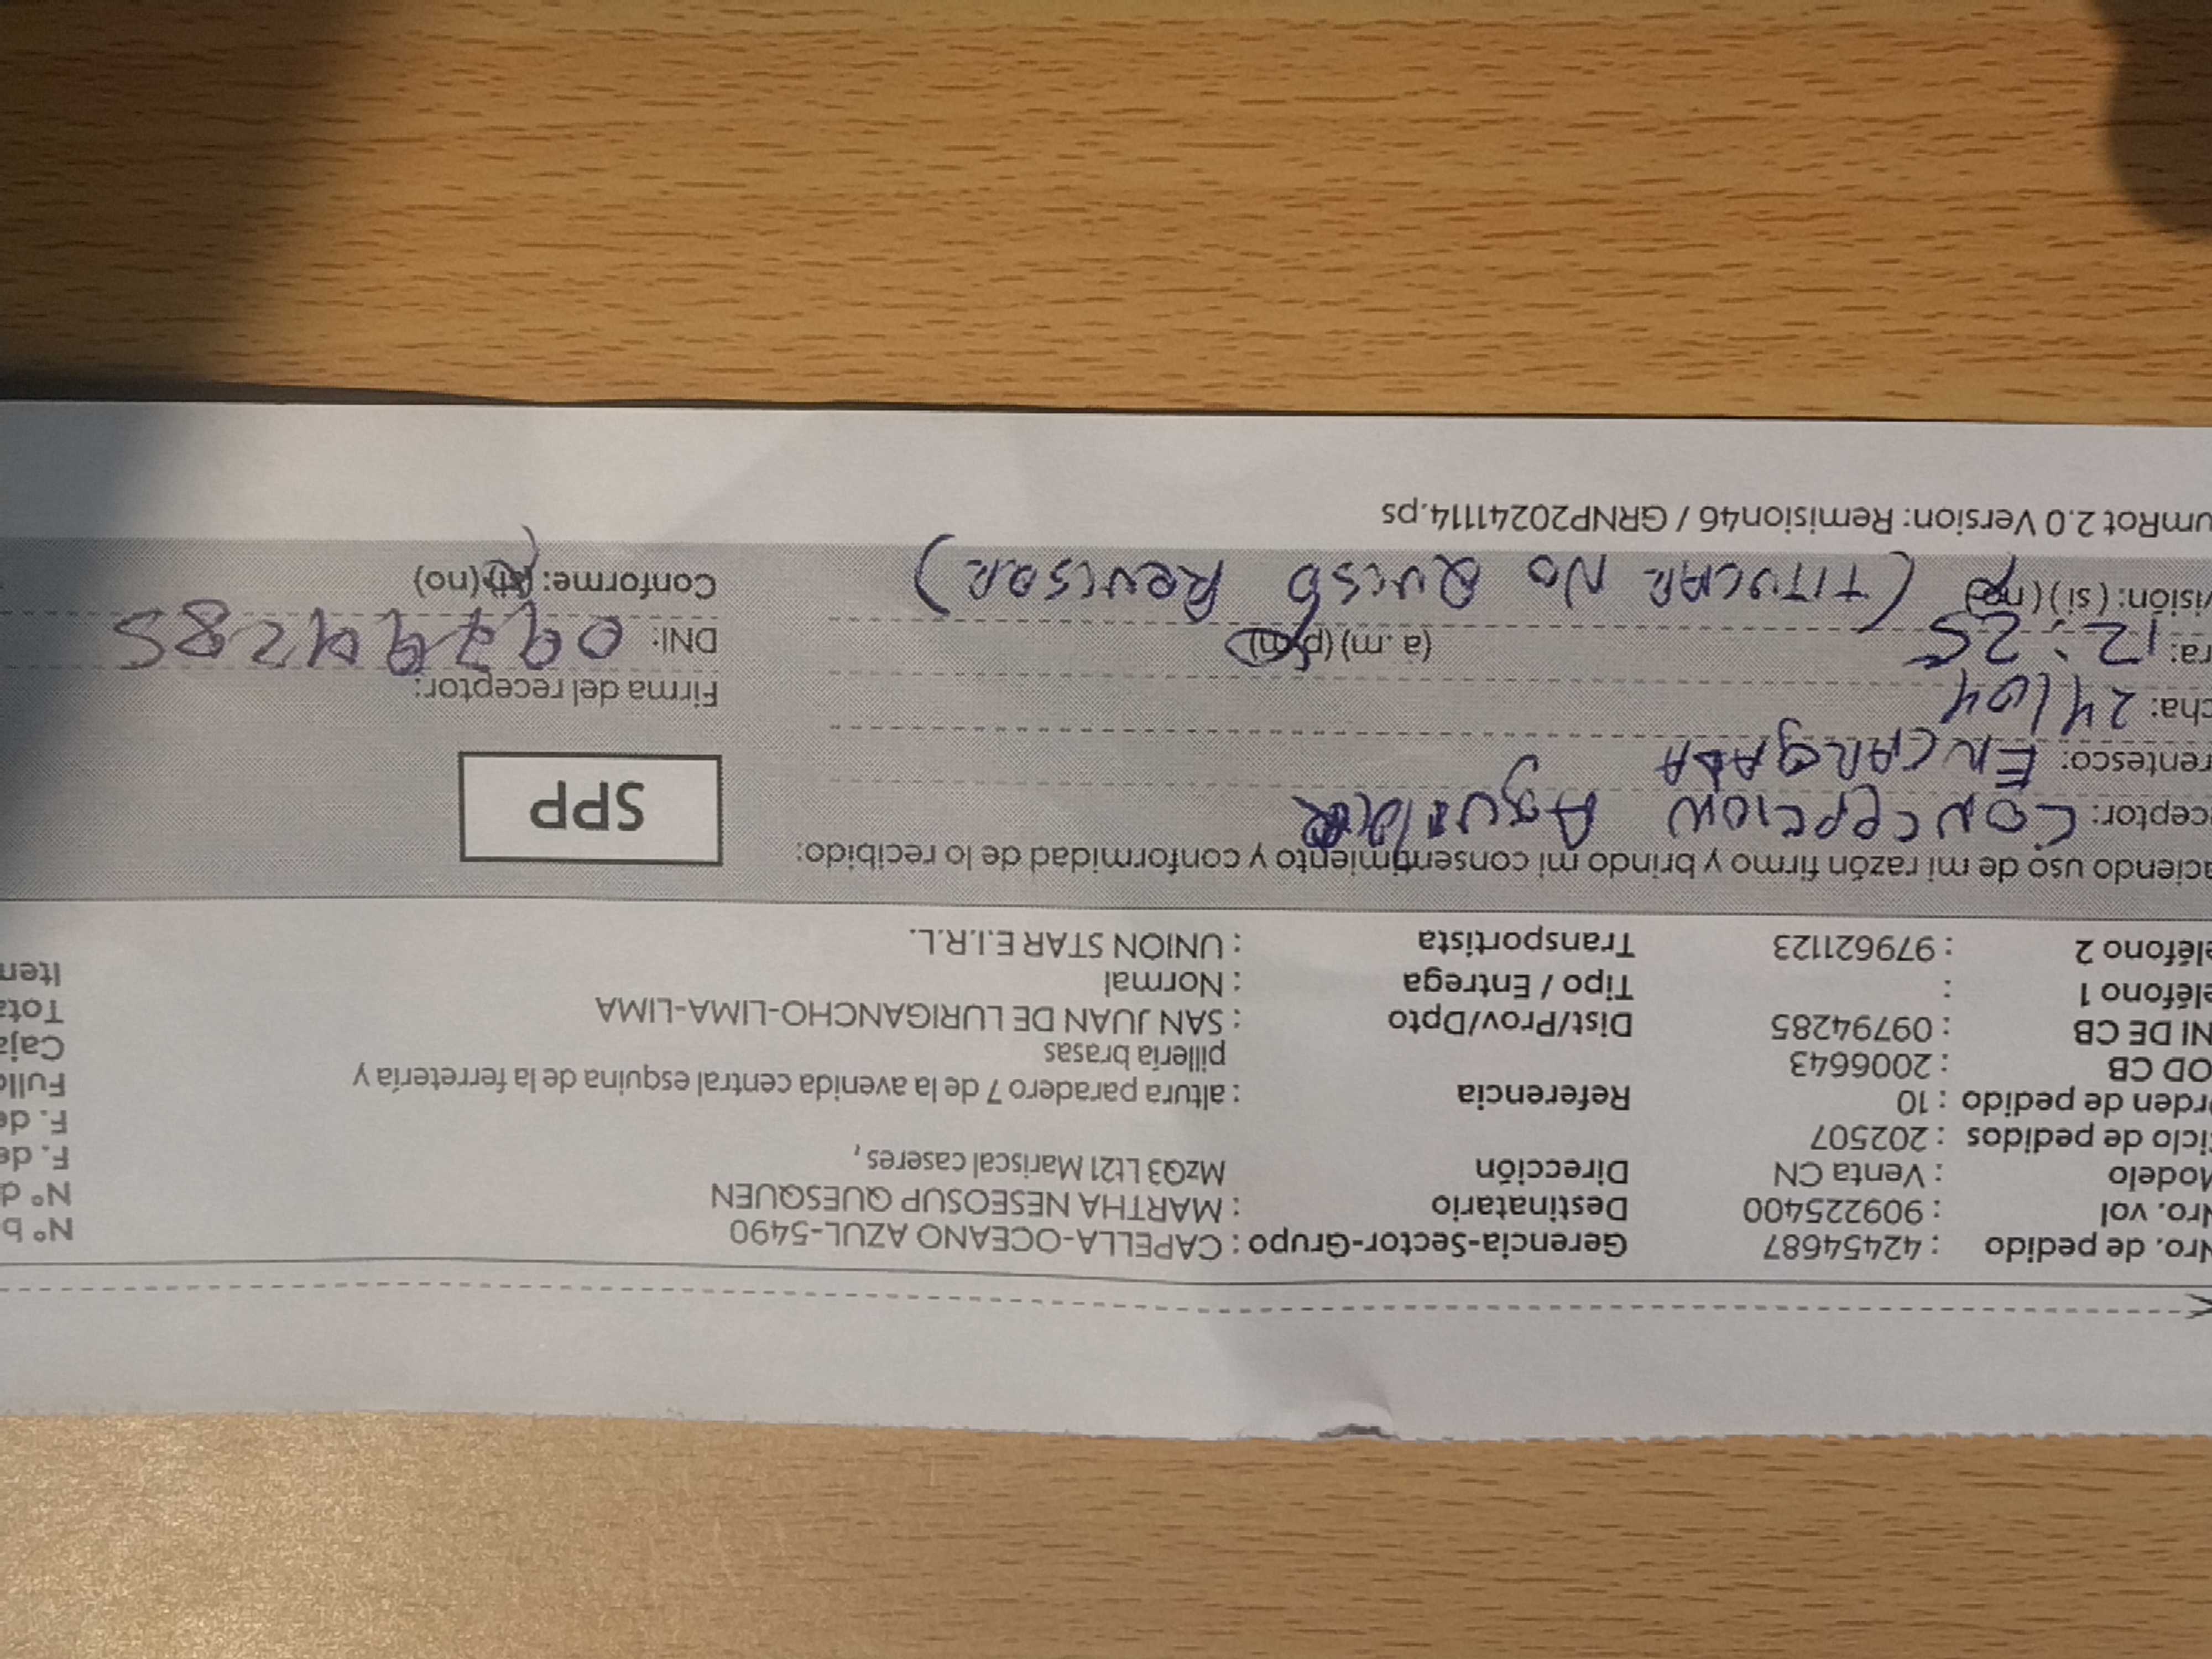 Nro. de pedido : 42454687 Gerencia-Sector-Grupo : CAPELLA-OCEANO AZUL-5490 N° b
Nro. vol : 909225400 Destinatario : MARTHA NESEOSUP QUESQUEN N° d
Modelo : Venta CN Dirección MzQ3 Lt21 Mariscal caseres, F. de
Ciclo de pedidos : 202507 F. de
rden de pedido : 10 Referencia : altura paradero 7 de la avenida central esquina de la ferretería y Fullc
OD CB : 2006643 pilleria brasas Caja
NI DE CB : 09794285 Dist/Prov/Dpto : SAN JUAN DE LURIGANCHO-LIMA-LIMA Tota
eléfono 1 : Tipo / Entrega : Normal Iten
eléfono 2 : 979621123 Transportista : UNION STAR E.I.R.L.
aciendo uso de mi razón firmo y brindo mi consentimiento y conformidad de lo recibido:
ceptor: CONCEPCION SPP
rentesco: ENCARGADA
cha: 24/04 Firma del receptor:
ra: 12:25 (a. m) (p. m) DNI: 09794285
visión: (si) (no) (TITULAR NO QUISO REVISAR) Conforme: (si) (no)
umRot 2.0 Version: Remision46 / GRNP20241114.ps